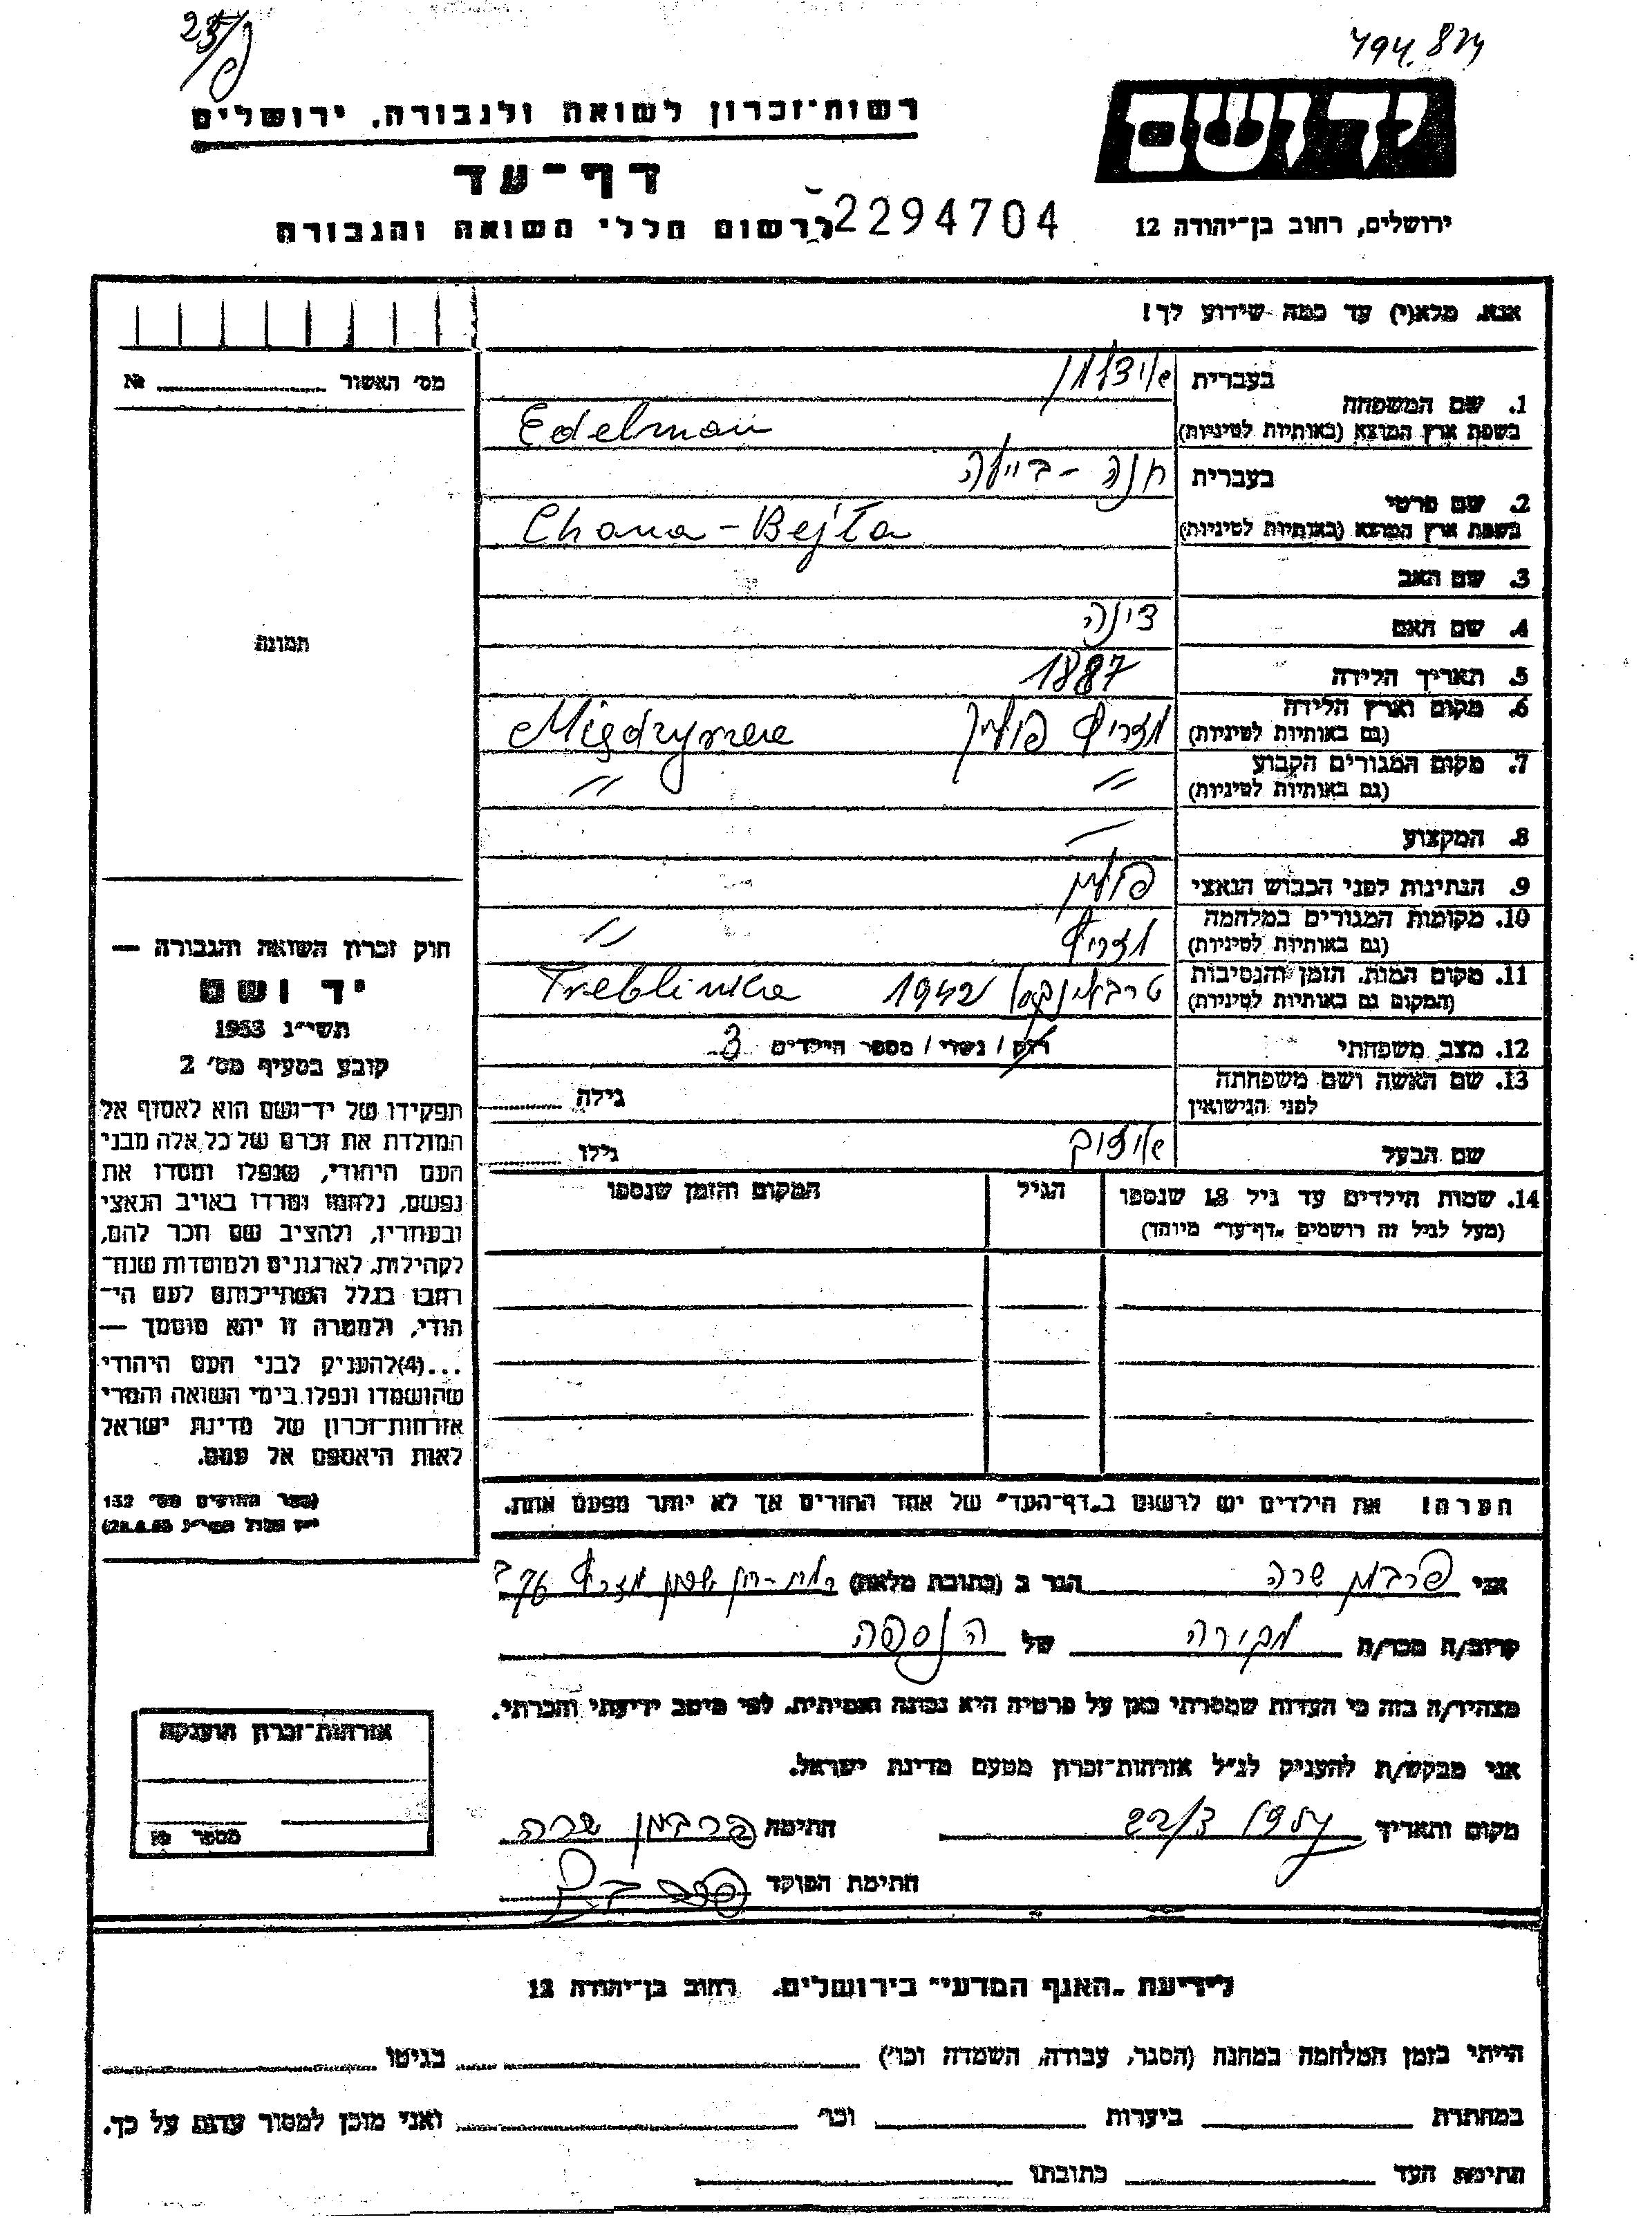 25/9
794.874
יד ושם
רשות-זכרון לשואה ולגבורה, ירושלים
דף-עד
2294704
לרשום חללי השואה והגבורה
ירושלים, רחוב בן-יהודה 12
אנא, מלא(י) עד כמה שידוע לך!
מס' האשור № 
1. שם המשפחה בעברית אידלמן
בשפת ארץ המוצא (באותיות לטיניות) Edelman
2. שם פרטי בעברית חנה - ביילה
בשפת ארץ המוצא (באותיות לטיניות) Chana - Bejła
3. שם האב
4. שם האם דינה
5. תאריך הלידה 1887
6. מקום וארץ הלידה
(גם באותיות לטיניות) מזריץ פולין
7. מקום המגורים הקבוע
(גם באותיות לטיניות) " "
8. המקצוע —
9. הנתינות לפני הכבוש הנאצי פולין
10. מקומות המגורים במלחמה
(גם באותיות לטיניות) מזריץ "
11. מקום המות, הזמן והנסיבות
(המקום גם באותיות לטיניות) 1942 Treblinka
12. מצב משפחתי רווק / נשוי / מספר הילדים 3
13. שם האשה ושם משפחתה
לפני הנישואין גילה
שם הבעל גילו
14. שמות הילדים עד גיל 18 שנספו הגיל המקום והזמן שנספו
(מעל לגיל זה רושמים "דף-עד" מיוחד)
הערה! את הילדים יש לרשום ב"דף-העד" של אחד ההורים אך לא יותר מפעם אחת.
תמונה
חוק זכרון השואה והגבורה —
יד ושם
תשי"ג 1953
קובע בסעיף מס' 2
תפקידו של יד-ושם הוא לאסוף אל
המולדת את זכרם של כל אלה מבני
העם היהודי, שנפלו ומסרו את
נפשם, נלחמו ומרדו באויב הנאצי
ובעוזריו, ולהציב שם וזכר להם,
לקהילות, לארגונים ולמוסדות שנח-
רבו בגלל השתייכותם לעם הי-
הודי, ולמטרה זו יהא מוסמך —
...(4) להעניק לבני העם היהודי
שהושמדו ונפלו בימי השואה והמרי
אזרחות-זכרון של מדינת ישראל
לאות היאספם אל עמם.
(ספר החוקים מס' 132
אני פרבמן שרה הגר ב (כתובת מלאה)
קרוב/ה מכר/ה מכירה של הנספה
מצהיר/ה בזה כי העדות שמסרתי כאן על פרטיה היא נכונה ואמיתית, לפי מיטב ידיעתי והכרתי.
אני מבקש/ת להעניק לנ"ל אזרחות-זכרון מטעם מדינת ישראל.
מקום ותאריך 22/3 חתימה פרבמן שרה
חתימת הפוקד
אזרחות-זכרון הוענקה
מספר №
לידיעת "האגף המדעי" בירושלים, רחוב בן-יהודה 12
הייתי בזמן המלחמה במחנה (הסגר, עבודה, השמדה וכו') בגיטו
במחתרת ביערות וכו' ואני מוכן למסור עדות על כך.
חתימת העד כתובתו